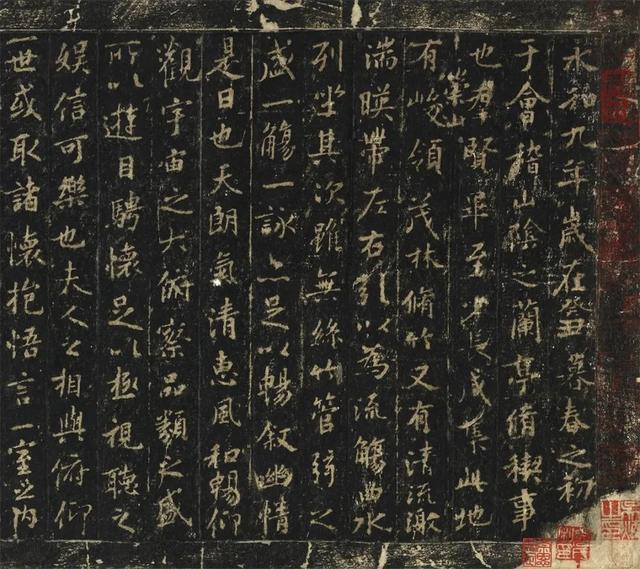 永和九年歲在癸丑暮春之初
于會稽山陰之蘭亭脩禊事
也羣賢畢至少長咸集此地
有崇山峻領茂林脩竹又有清流激
湍暎帶左右引以為流觴曲水
列坐其次雖無絲竹管弦之
盛一觴一詠亦足以暢敘幽情
是日也天朗氣清惠風和暢仰
觀宇宙之大俯察品類之盛
所以遊目騁懷足以極視聽之
娛信可樂也夫人之相與俯仰
一世或取諸懷抱悟言一室之內